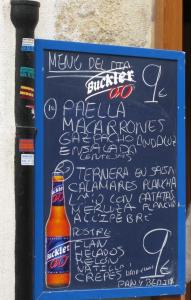 Buckler
0,0
MENU DEL DIA
Buckler
0,0
9€
1º PAELLA
MACARRONES
GAZPACHO ANDALUZ
ENSALADA
2º TERNERA EN SALSA
CALAMARES PLANCHA
LOMO CON PATATAS
PLANCHA
POSTRE
FLAN
HELADOS
NATILLA
CREPES
9€
PAN Y BEBIDA
Buckler
0,0